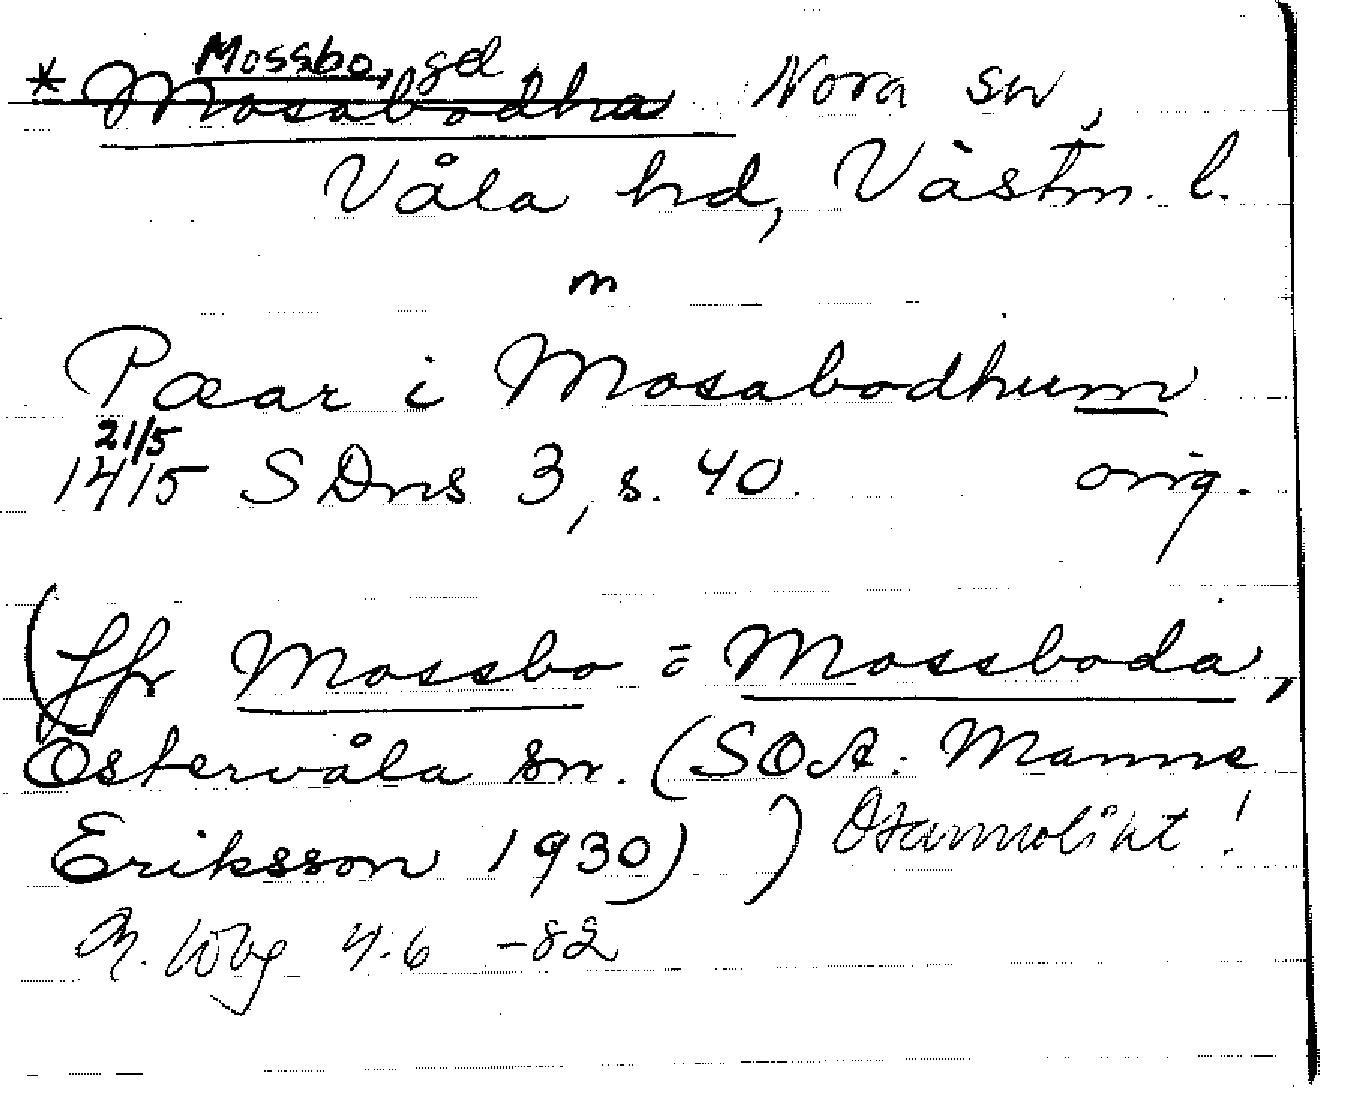 Mossbo, gd
* Mosabodha Nora sn,
Våla hd, Västm. l.
m
Pæar i Mosabodhum
21/5
1415 SDns 3, s. 40. orig.
(Jfr Mossbo = Mossboda,
Östervåla sn. (SOA: Manne
Eriksson 1930) ) Osannolikt!
4.6 -82